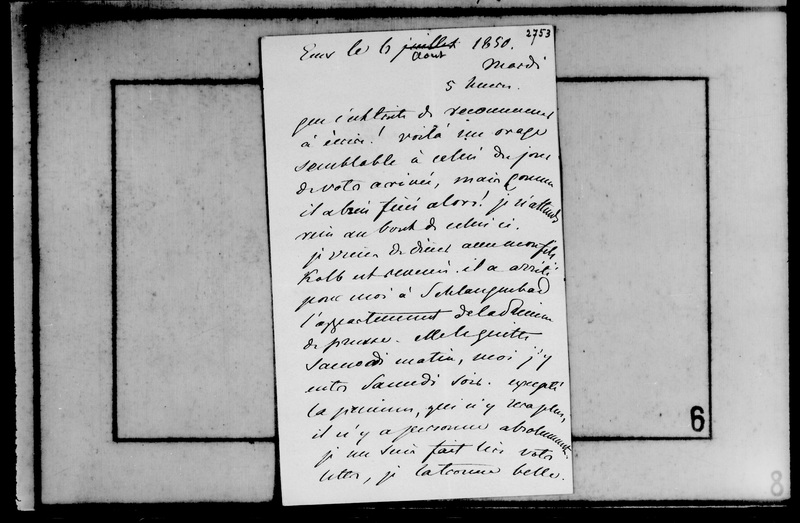 2753
Ems le 6 juillet 1850.
Aout
Mardi
5 heures.
que c'est triste de recommencer
à écrire! voilà un orage
semblable à celui du jour
de votre arrivée, mais comme
il a bien fini alors! je n'attends
rien au bout de celui ci.
je viens de diner avec mon fils
Kolb est revenu. il a arrêté
pour moi à Schlangenbad
l'appartement de la Princesse
de prusse. Elle le quitte
Samedi matin, moi j'y
entre Samedi soir. excepté
la princesse, qui n'y sera plus,
il n'y a personne absolument.
je me suis fait lire votre
lettre, je la trouve belle.
6
8